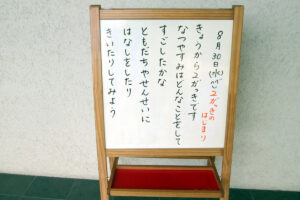 8月30日(水)
2がっきの
はじまり
きょうから2がっきです
なつやすみはどんなことをして
すごしたかな
ともだちやせんせいに
はなしをしたり
きいたりしてみよう